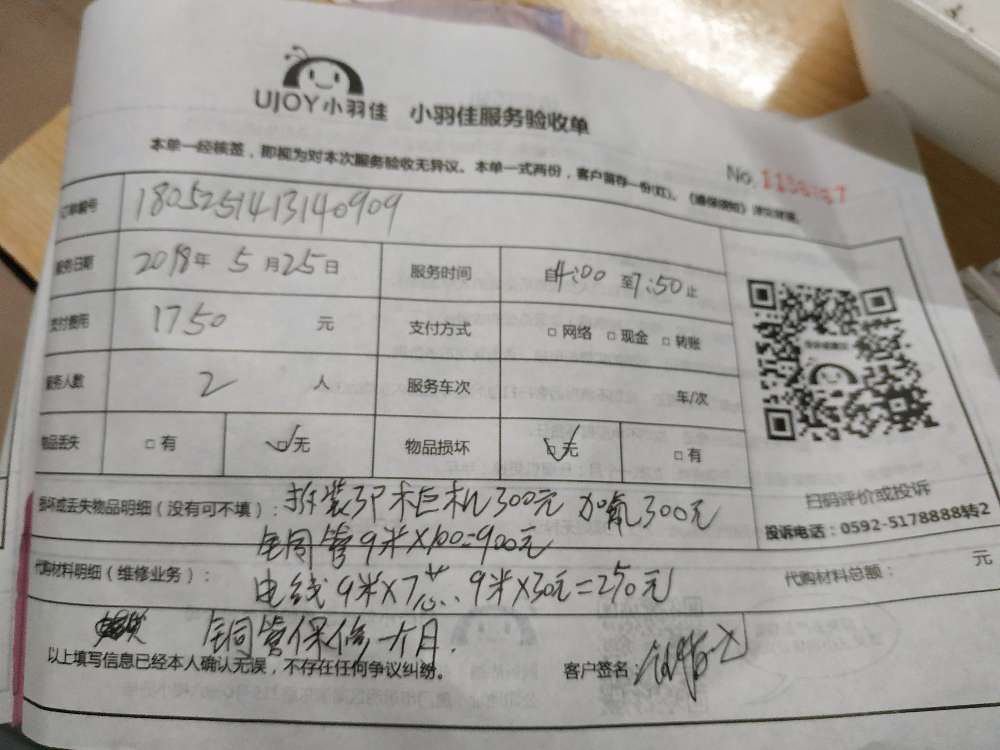 UJOY小羽佳 小羽佳服务验收单
本单一经核签，即视为对本次服务验收无异议。本单一式两份，客户留存一份(红)。
No.
订单编号 1805251413140909
服务日期 2018年 5月25日 服务时间 自4:00 至7:50止
支付费用 1750 元 支付方式 □网络 □现金 □转账
服务人数 2 人 服务车次 车/次
物品丢失 □有 ☑无 物品损坏 ☑无 □有
损坏或丢失物品明细（没有可不填）： 拆装3P柜机300元 加氟300元
铜管9米×100=900元
代购材料明细（维修业务）： 电线9米×7芯 9米×30元=250元 代购材料总额： 元
铜管保修一个月.
以上填写信息已经本人确认无误，不存在任何争议纠纷。 客户签名：
扫码评价或投诉
投诉电话：0592-5178888转2